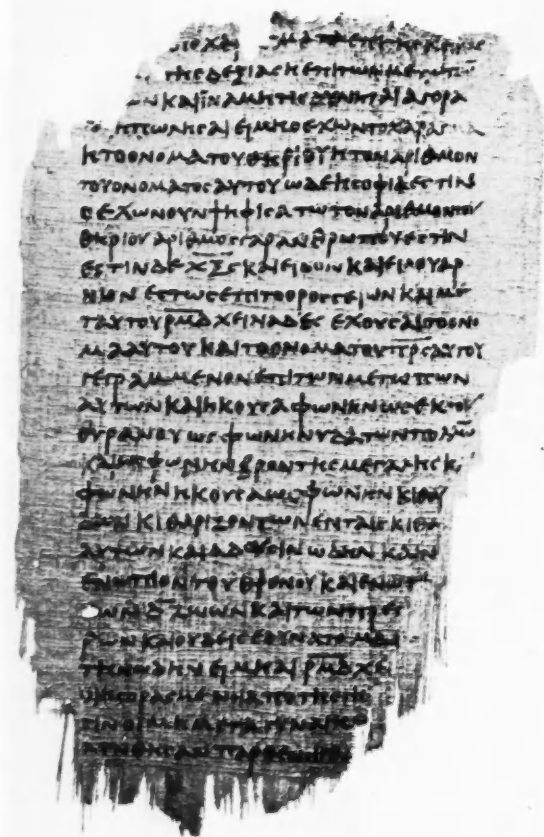 ΜΑΤΑΕΠΙΤΗϹΧΕΙΡΟϹ
ΤΗϹΔΕΞΙΑϹΗΕΠΙΤΩΝΜΕΤΩΠΩ̅
ΩΝΚΑΙΪΝΑΜΗΤΙϹΔΥΝΗΤΑΙΑΓΟΡΑ
ΗΠΩΛΗϹΑΙΕΙΜΗΟΕΧΩΝΤΟΧΑΡΑΓΜΑ
ΗΤΟΟΝΟΜΑΤΟΥΘΗΡΙΟΥΗΤΟΝΑΡΙΘΜΟΝ
ΤΟΥΟΝΟΜΑΤΟϹΑΥΤΟΥΩΔΕΗϹΟΦΙΑΕϹΤΙΝ
ΟΕΧΩΝΟΥΝΨΗΦΙϹΑΤΩΤΟΝΑΡΙΘΜΟΝΤΟΥ
ΘΗΡΙΟΥΑΡΙΘΜΟϹΓΑΡΑΝΘΡΩΠΟΥΕϹΤΙΝ
ΕϹΤΙΝΔΕΧ̅Ξ̅Ϛ̅ΚΑΙΕΙΔΟΝΚΑΙΕΙΔΟΥΑΡ
ΝΙΟΝΕϹΤΩϹΕΠΙΤΟΟΡΟϹϹΕΙΩΝΚΑΙΜΕ
ΤΑΥΤΟΥΡ̅Μ̅Δ̅ΧΕΙΛΙΑΔΕϹΕΧΟΥϹΑΙΤΟΟΝΟ
ΜΑΑΥΤΟΥΚΑΙΤΟΟΝΟΜΑΤΟΥΠ̅Ρ̅Ϲ̅ΑΥΤΟΥ
ΓΕΓΡΑΜΜΕΝΟΝΕΠΙΤΩΝΜΕΤΩΠΩΝ
ΑΥΤΩΝΚΑΙΗΚΟΥϹΑΦΩΝΗΝΩϹΕΚΤΟΥ
ΟΥΡΑΝΟΥΩϹΦΩΝΗΝΥΔΑΤΩΝΠΟΛΛΩ̅
ΚΑΙΩϹΦΩΝΗΝΒΡΟΝΤΗϹΜΕΓΑΛΗϹΚ
ΦΩΝΗΝΗΚΟΥϹΑΩϹΦΩΝΗΝΚΙΘΑ
ΔΩΝΚΙΘΑΡΙΖΟΝΤΩΝΕΝΤΑΙϹΚΙΘΑ
ΑΥΤΩΝΚΑΙΑΔΟΥϹΙΝΩΔΗΝΚΑΙΝ
ΕΝΩΠΙΟΝΤΟΥΘΡΟΝΟΥΚΑΙΕΝΩΠΙ
ΩΝΔ̅ΖΩΩΝΚΑΙΤΩΝΠΡΕϹ
ΡΩΝΚΑΙΟΥΔΕΙϹΕΔΥΝΑΤΟΜΑΘ
ΤΗΝΩΔΗΝΕΙΜΗΑΙΡ̅Μ̅Δ̅ΧΕΙ
ΟΙΗΓΟΡΑϹΜΕΝΟΙΑΠΟΤΗϹΓΗϹ
ΜΕΤΑΓΥΝΑΙΚΩ
ΠΑΡΘΕΝΟΙ